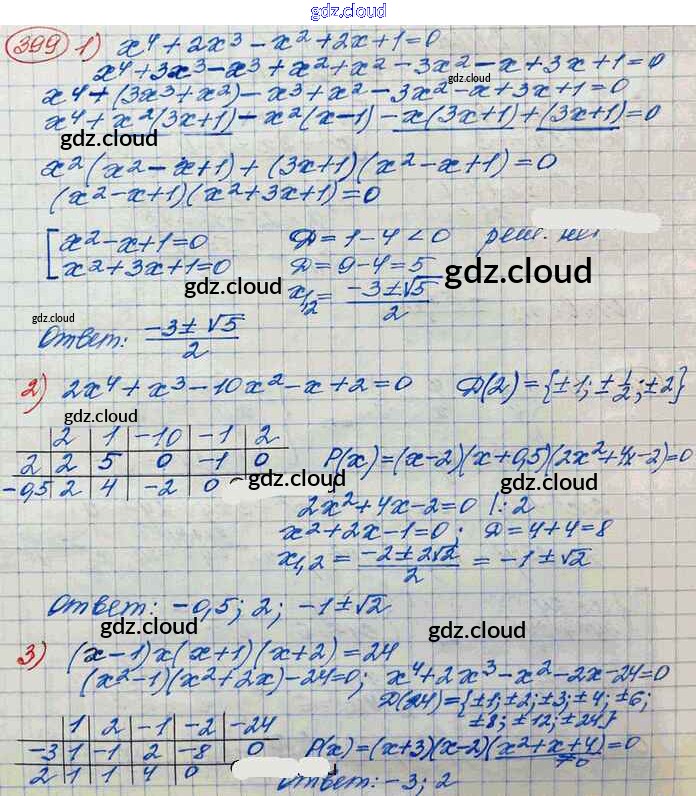 gdz.cloud
399 1) x⁴ + 2x³ - x² + 2x + 1 = 0
x⁴ + 3x³ - x³ + x² + x² - 3x² - x + 3x + 1 = 0
gdz.cloud
x⁴ + (3x³ + x²) - x³ + x² - 3x² - x + 3x + 1 = 0
x⁴ + x²(3x+1) - x²(x-1) - x(3x+1) + (3x+1) = 0
gdz.cloud
gdz.cloud
x²(x² - x + 1) + (3x+1)(x² - x + 1) = 0
(x² - x + 1)(x² + 3x + 1) = 0
x² - x + 1 = 0 D = 1 - 4 < 0 реш. нет
x² + 3x + 1 = 0 D = 9 - 4 = 5
gdz.cloud gdz.cloud
x₁,₂ = (-3 ± √5)/2
gdz.cloud
Ответ: (-3 ± √5)/2
gdz.cloud
2) 2x⁴ + x³ - 10x² - x + 2 = 0 D(2) = {±1; ±1/2; ±2}
gdz.cloud
2 1 -10 -1 2
2 2 5 0 -1 0 P(x) = (x-2)(x+0,5)(2x²+4x-2) = 0
-0,5 2 4 -2 0
gdz.cloud gdz.cloud
2x² + 4x - 2 = 0 |: 2
x² + 2x - 1 = 0; D = 4 + 4 = 8
x₁,₂ = (-2 ± 2√2)/2 = -1 ± √2
Ответ: -0,5; 2; -1 ± √2
gdz.cloud gdz.cloud
3) (x-1)x(x+1)(x+2) = 24
(x²-1)(x²+2x) - 24 = 0; x⁴ + 2x³ - x² - 2x - 24 = 0
D(24) = {±1; ±2; ±3; ±4; ±6;
±8; ±12; ±24}
1 2 -1 -2 -24
-3 1 -1 2 -8 0 P(x) = (x+3)(x-2)(x²+x+4) = 0
≠0
2 1 1 4 0
Ответ: -3; 2